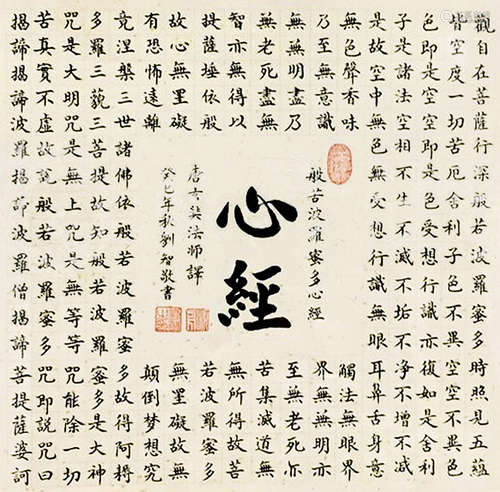 觀自在菩薩行深般若波羅蜜多時照見五蘊
皆空度一切苦厄舍利子色不異空空不異色
色即是空空即是色受想行識亦復如是舍利
子是諸法空相不生不滅不垢不淨不增不減
是故空中無色無受想行識無眼耳鼻舌身意
無色聲香味觸法無眼界
乃至無意識界無無明亦
無無明盡乃至無老死亦
無老死盡無苦集滅道無
智亦無得以無所得故菩
提薩埵依般若波羅蜜多
故心無罣礙無罣礙故無
有恐怖遠離顛倒夢想究
竟涅槃三世諸佛依般若波羅蜜多故得阿耨
多羅三藐三菩提故知般若波羅蜜多是大神
咒是大明咒是無上咒是無等等咒能除一切
苦真實不虛故說般若波羅蜜多咒即說咒曰
揭諦揭諦波羅揭諦波羅僧揭諦菩提薩婆訶
般若波羅蜜多心經
心經
唐玄奘法師譯
癸巳年秋劉智敬書